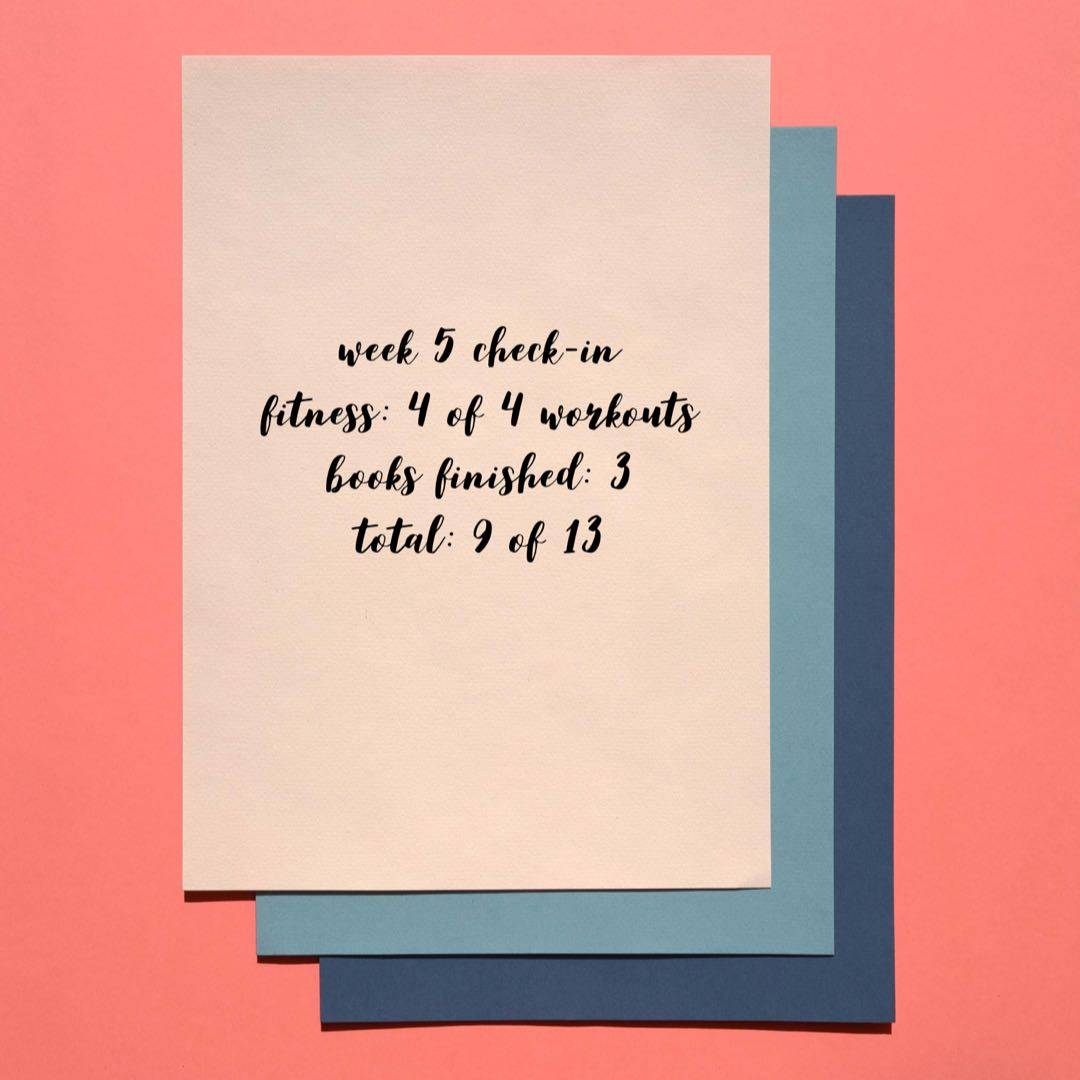 week 5 check-in
fitness: 4 of 4 workouts
books finished: 3
total: 9 of 13